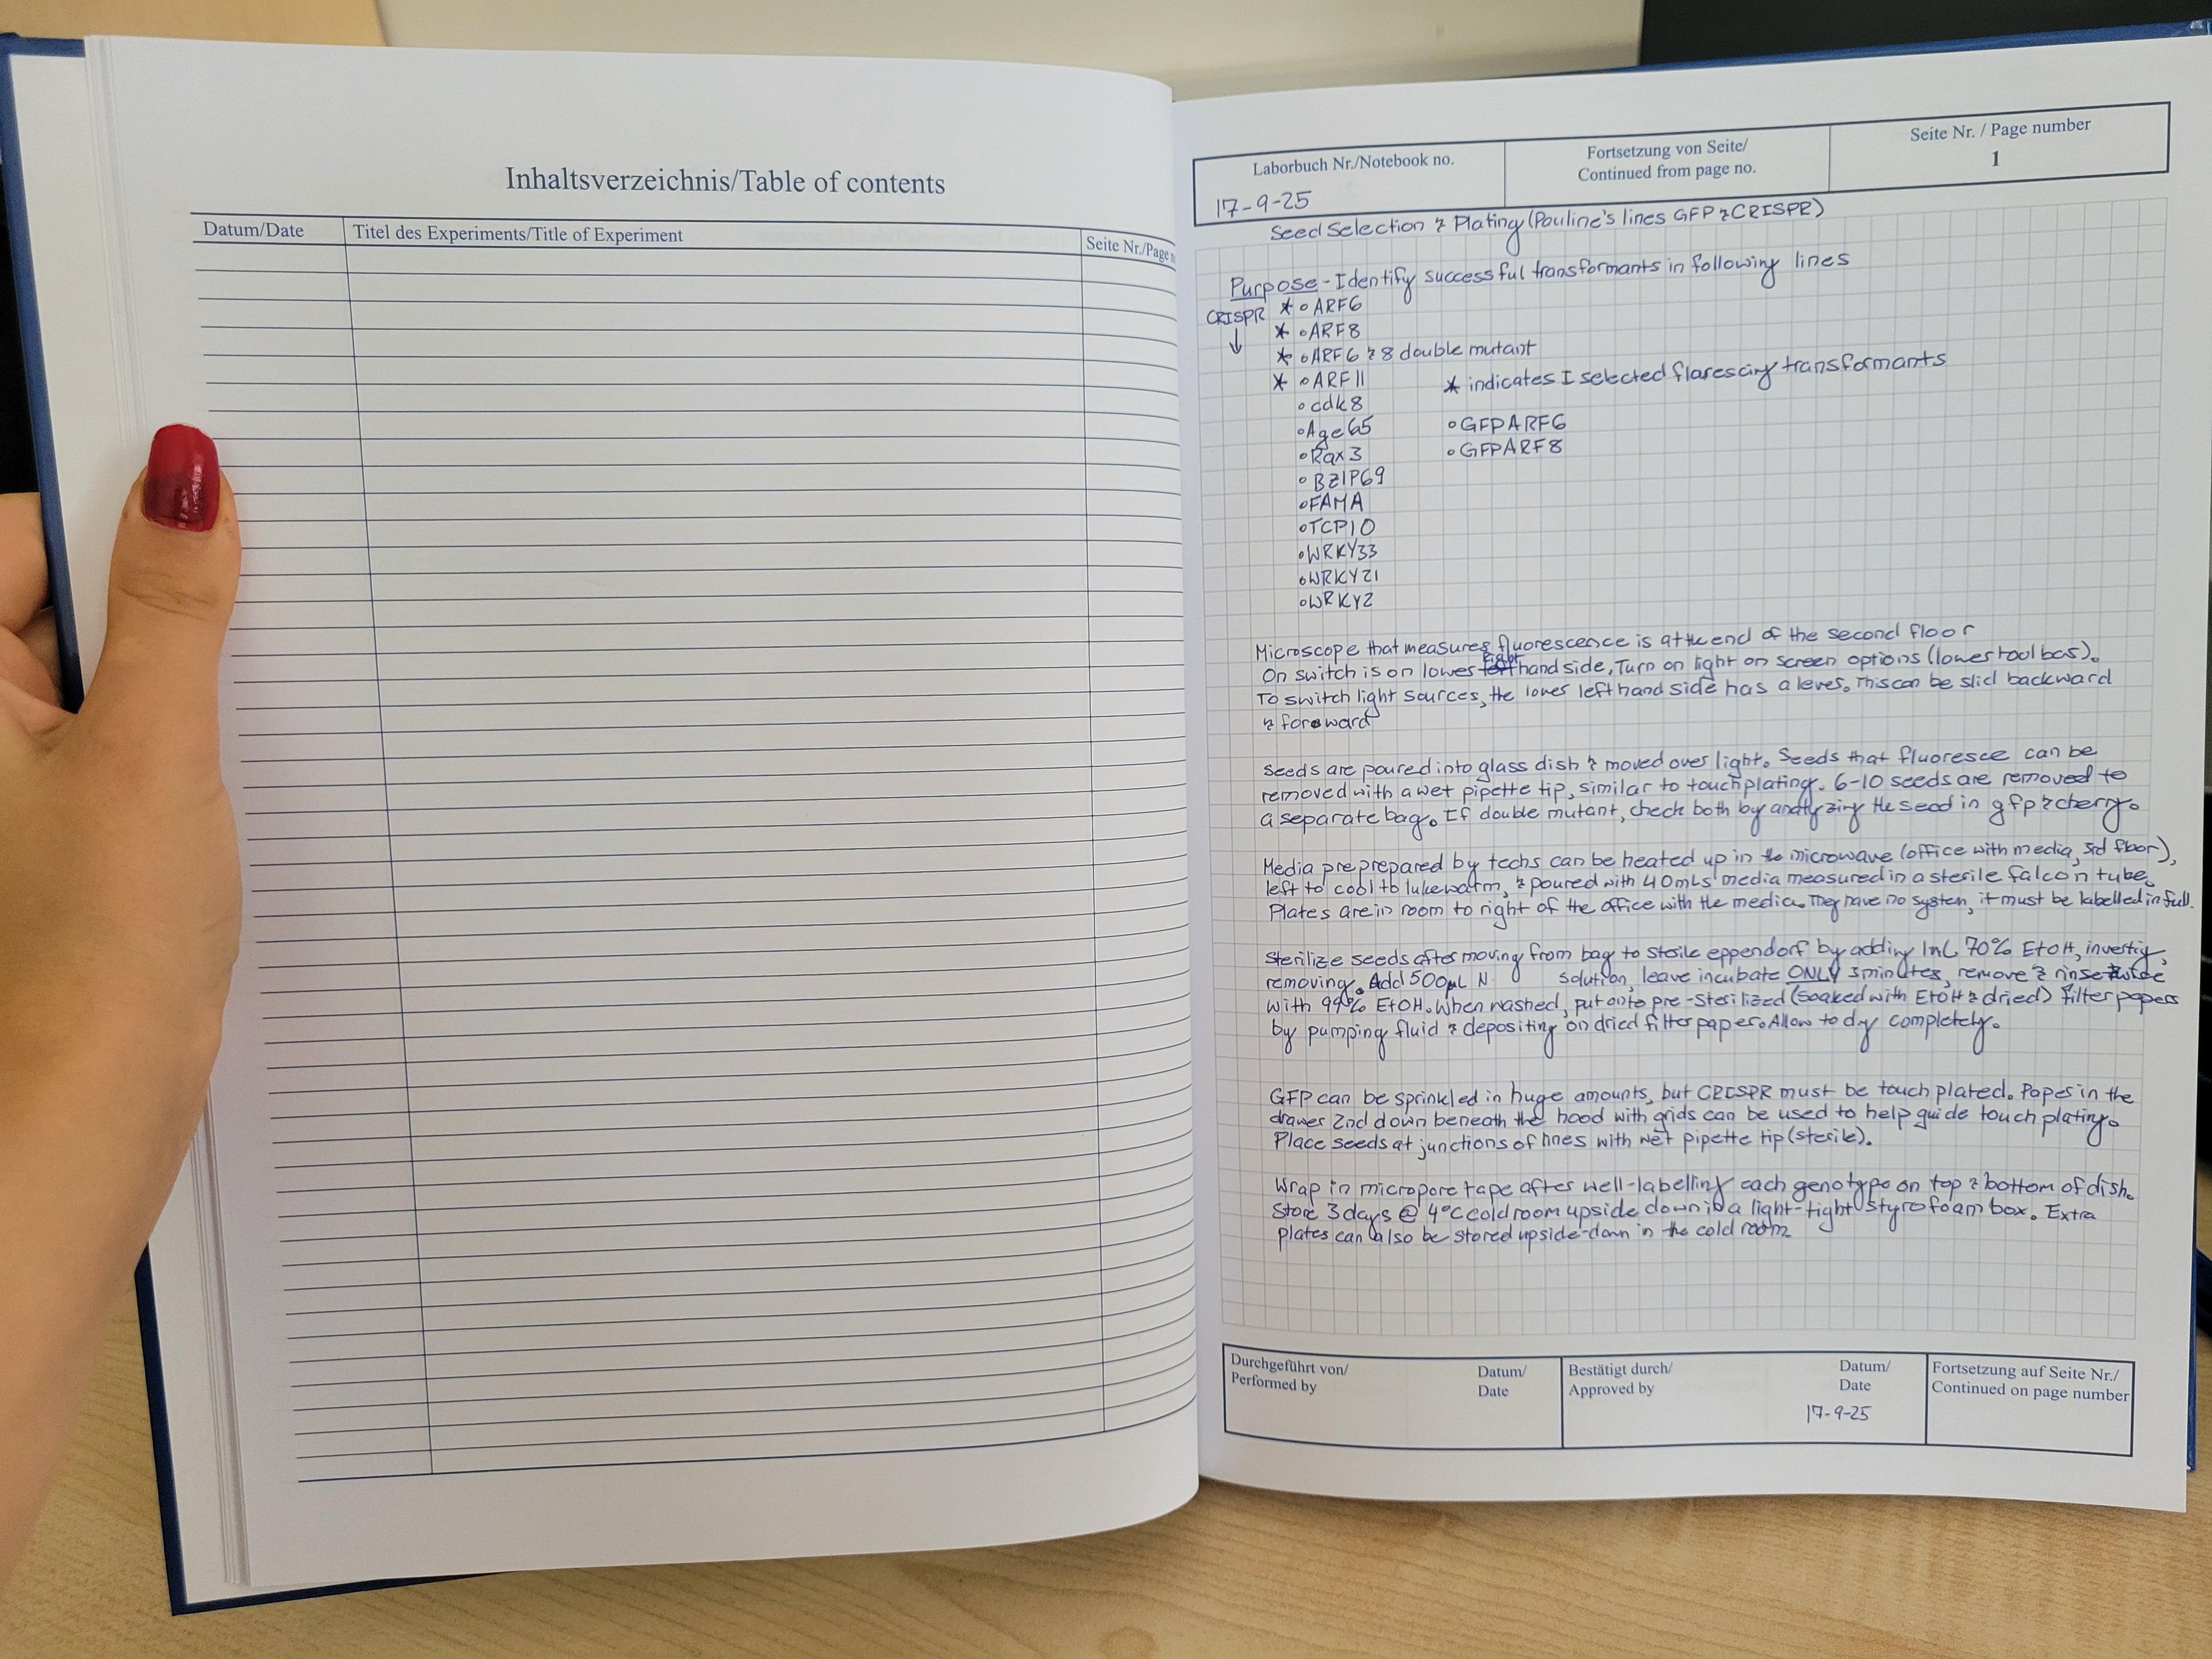 Inhaltsverzeichnis/Table of contents
Datum/Date
Titel des Experiments/Title of Experiment
Seite Nr./Page
Laborbuch Nr./Notebook no.
17-9-25
Fortsetzung von Seite/
Continued from page no.
Seite Nr. / Page number
1
Seed Selection & Plating (Pauline's lines GFP & CRISPR)
Purpose - Identify successful transformants in following lines
CRISPR ↓
* ∘ ARF6
* ∘ ARF8
* ∘ ARF6 & 8 double mutant
* ∘ ARF11
* indicates I selected flarescing transformants
∘ cdk8
∘ Age65
∘ Rax3
∘ BZIP69
∘ FAMA
∘ TCP10
∘ WRKY33
∘ WRKY21
∘ WRKY2
∘ GFPARF6
∘ GFPARF8
Microscope that measures fluorescence is at the end of the second floor
On switch is on lower right hand side, Turn on light on screen options (lower toolbar).
To switch light sources, the lower left hand side has a lever. This can be slid backward
& foreward
Seeds are poured into glass dish & moved over light. Seeds that fluoresce can be
removed with a wet pipette tip, similar to touch plating. 6-10 seeds are removed to
a separate bag. If double mutant, check both by analyzing the seed in gfp & cherry.
Media preprepared by techs can be heated up in the microwave (office with media, 3rd floor),
left to cool to lukewarm, & poured with 40mLs media measured in a sterile falcon tube.
Plates are in room to right of the office with the media. They have no system, it must be labelled in full.
Sterilize seeds after moving from bag to sterile eppendorf by adding 1mL 70% EtOH,
removing. Add 500µL N solution, leave incubate ONLY 3 minutes, remove & rinse twice
with 99% EtOH. When washed, put onto pre-sterilized (soaked with EtOH & dried) filter papers
by pumping fluid & depositing on dried filter paper. Allow to dry completely.
GFP can be sprinkled in huge amounts, but CRISPR must be touch plated. Papes in the
drawer 2nd down beneath the hood with grids can be used to help guide touch plating.
Place seeds at junctions of lines with wet pipette tip (sterile).
Wrap in micropore tape after well-labelling each genotype on top & bottom of dish.
Store 3 days @ 4°C cold room upside down in a light-tight styrofoam box. Extra
plates can also be stored upside-down in the cold room
Durchgeführt von/
Performed by
Datum/
Date
Bestätigt durch/
Approved by
Datum/
Date
17-9-25
Fortsetzung auf Seite Nr./
Continued on page number